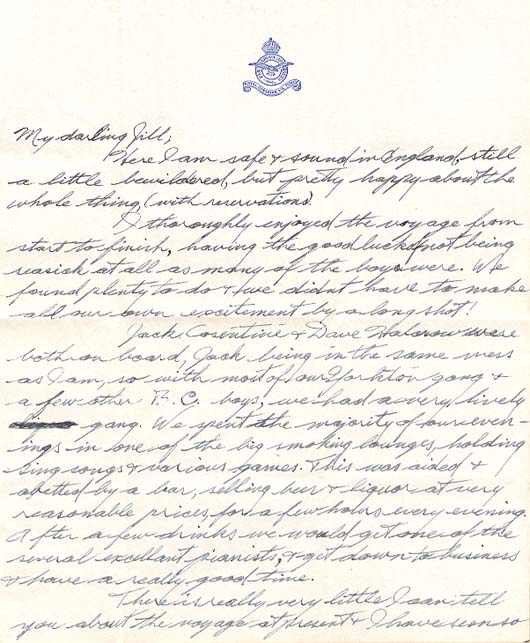 ROYAL CANADIAN AIR FORCE
My darling Jill,
Here I am safe & sound in England, still
a little bewildered, but pretty happy about the
whole thing, (with reservations).
I thoroughly enjoyed the voyage from
start to finish, having the good luck of not being
seasick at all as many of the boys were. We
found plenty to do & we didnt have to make
all our own excitement by a long shot!
Jack Cosentine & Dave Halcrow were
both on board, Jack being in the same mess
as I am, so with most of our Yorkton gang &
a few other B.C. boys, we had a very lively
gang. We spent the majority of our even-
ings in one of the big smoking lounges, holding
sing songs & various games. This was aided &
abetted by a bar, selling beer & liquor at very
reasonable prices, for a few hours every evening.
After a few drinks we would get one of the
several excellant pianists, & get down to business
& have a really good time.
There is really very little I can tell
you about the voyage at present & I have seen so